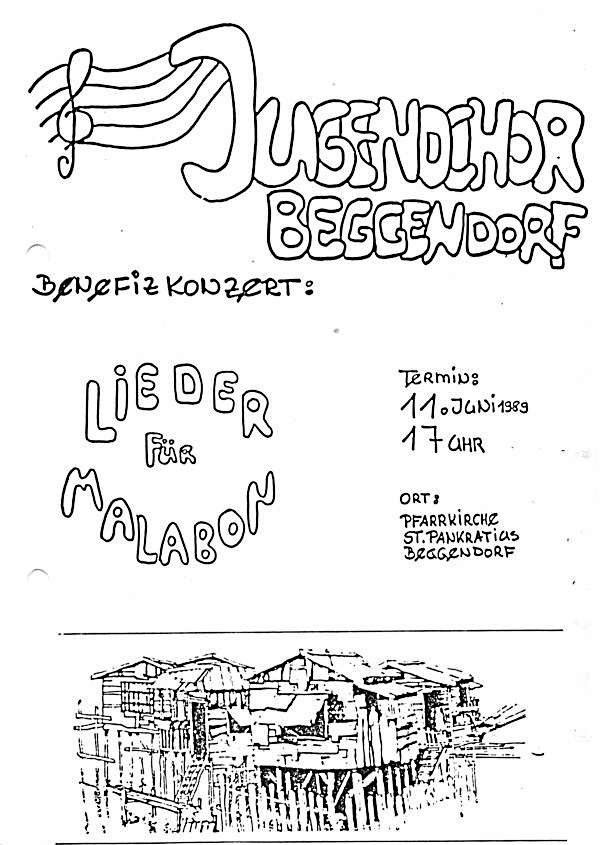 JUGENDCHOR
BEGGENDORF
BENEFIZKONZERT:
LIEDER
FÜR
MALABON
TERMIN:
11. JUNI 1989
17 UHR
ORT:
PFARRKIRCHE
ST. PANKRATIUS
BEGGENDORF